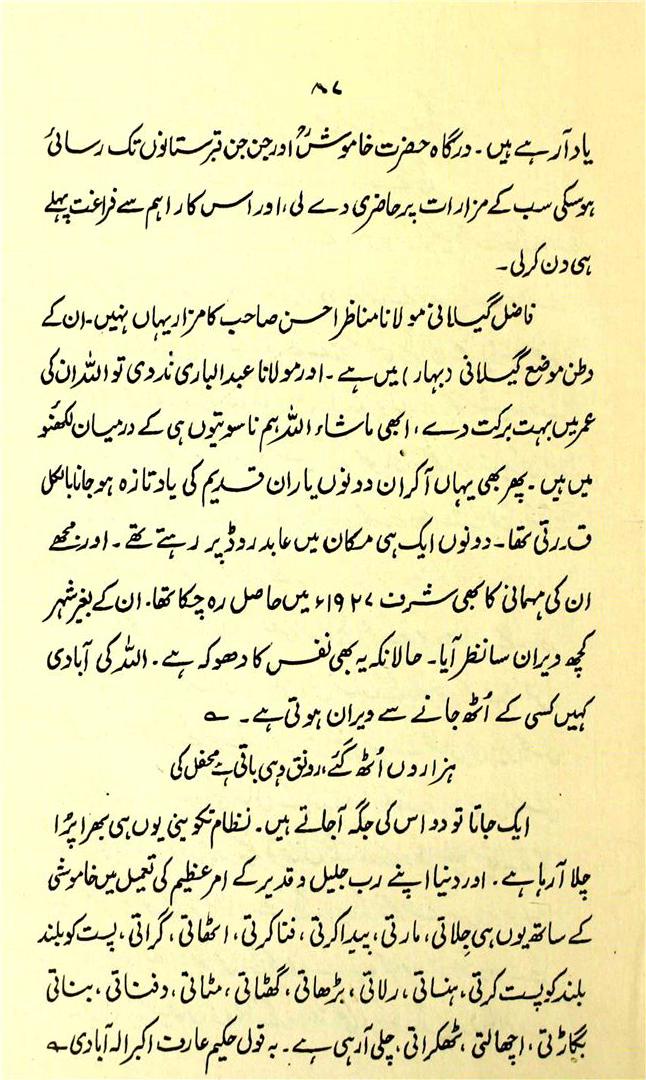 ۸۷
یاد آرہے ہیں۔ درگاہ حضرت خاموشؒ اور جن جن قبرستانوں تک رسائی
ہوسکی سب کے مزارات پر حاضری دے لی، اور اس کار اہم سے فراغت پہلے
ہی دن کرلی۔
فاضل گیلانی مولانا مناظر احسن صاحب کا مزار یہاں نہیں۔ ان کے
وطن موضع گیلانی (بہار) میں ہے۔ اور مولانا عبدالباری ندوی تو اللہ ان کی
عمر میں بہت برکت دے، ابھی ماشاء اللہ ہم ناسوتیوں ہی کے درمیان لکھنؤ
میں ہیں۔ پھر بھی یہاں آکر ان دونوں یاران قدیم کی یاد تازہ ہوجانا بالکل
قدرتی تھا۔ دونوں ایک ہی مکان میں عابد روڈ پر رہتے تھے۔ اور مجھے
ان کی مہمانی کا بھی شرف ۱۹۲۷ء میں حاصل رہ چکا تھا۔ ان کے بغیر شہر
کچھ ویران سا نظر آیا۔ حالانکہ یہ بھی نفس کا دھوکہ ہے۔ اللہ کی آبادی
کہیں کسی کے اُٹھ جانے سے ویران ہوتی ہے۔ ؎
ہزاروں اُٹھ گئے، رونق وہی باقی ہے محفل کی
ایک جاتا تو دو اس کی جگہ آجاتے ہیں۔ نظام تکوینی یوں ہی بھرا پُرا
چلا آرہا ہے۔ اور دنیا اپنے رب جلیل و قدیر کے امر عظیم کی تعمیل میں خاموشی
کے ساتھ یوں ہی جِلاتی، مارتی، پیدا کرتی، فنا کرتی، اٹھاتی، گراتی، پست کو بلند
بلند کو پست کرتی، ہنساتی، رلاتی، بڑھاتی، گھٹاتی، مٹاتی، دفناتی، بناتی
بگاڑتی، اچھالتی، ٹھکراتی، چلی آرہی ہے۔ بہ قول حکیم عارف اکبر الہ آبادی ؎